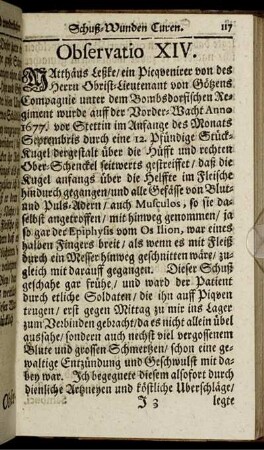 Schuß-Wunden Curen. 117
Observatio XIV.
MAtthäus Leske/ein Picqvenirer von des
Herrn Obrist-Lieutenant von Götzens
Compagnie unter dem Bombsdorffischen Re-
giment wurde auff der Vorder-Wacht Anno
1677. vor Stettin im Anfange des Monats
Septembris durch eine 12. Pfündige Stück-
Kugel dergestalt über die Hüfft und rechten
Ober-Schenckel seitwerts gestreiffet/ daß die
Kugel anfangs über die Helffte im Fleische
hindurch gegangen/und alle Gefässe von Blut-
und Puls-Adern/ auch Musculos, so sie da-
selbst angetroffen/ mit hinweg genommen/ ja
so gar der Epiphylis vom Os Ilion, war eines
halben Fingers breit/ als wenn es mit Fleiß
durch ein Messer hinweg geschnitten wäre/ zu-
gleich mit darauff gegangen. Dieser Schuß
geschahe gar frühe/ und ward der Patient
durch etliche Soldaten/ die ihn auff Piqven
trugen/ erst gegen Mittag zu mir ins Lager
zum Verbinden gebracht/da es nicht allein übel
aussahe/sondern auch nechst viel vergossenem
Blute und grossen Schmertzen/ schon eine ge-
waltige Entzündung und Geschwulst mit da-
bey war. Ich begegnete diesem alsofort durch
dienliche Artzneyen und köstliche Uberschläge/
J 3 legte